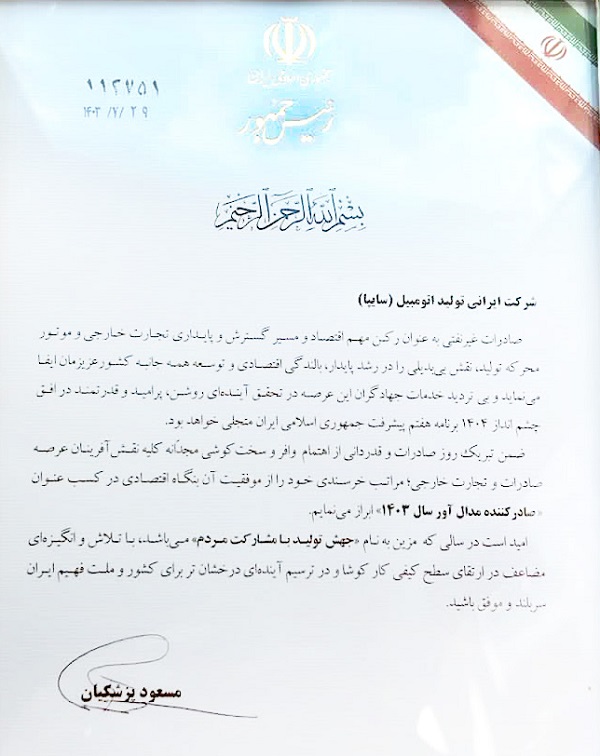 جمهوری اسلامی ایران
رئیس جمهور
۱۱۲۷۵۹
۱۴۰۳/۷/۲۹
بسم الله الرحمن الرحیم
شرکت ایرانی تولید اتومبیل (سایپا)
صادرات غیرنفتی به عنوان رکن مهم اقتصاد و مسیر گسترش و پایداری تجارت خارجی و موتور
محرکه تولید، نقش بی‌بدیلی را در رشد پایدار، بالندگی اقتصادی و توسعه همه جانبه کشور عزیزمان ایفا
می‌نماید و بی تردید خدمات جهادگران این عرصه در تحقق آینده‌ای روشن، پرامید و قدرتمند در افق
چشم انداز ۱۴۰۴ برنامه هفتم پیشرفت جمهوری اسلامی ایران متجلی خواهد بود.
ضمن تبریک روز صادرات و قدردانی از اهتمام وافر و سخت‌کوشی مجدّانه کلیه نقش آفرینان عرصه
صادرات و تجارت خارجی؛ مراتب خرسندی خود را از موفقیت آن بنگاه اقتصادی در کسب عنوان
«صادرکننده مدال آور سال ۱۴۰۳» ابراز می‌نمایم.
امید است در سالی که مزین به نام «جهش تولید با مشارکت مردم» می‌باشد، با تلاش و انگیزه‌ای
مضاعف در ارتقای سطح کیفی کار کوشا و در ترسیم آینده‌ای درخشان تر برای کشور و ملت فهیم ایران
سربلند و موفق باشید.
مسعود پزشکیان